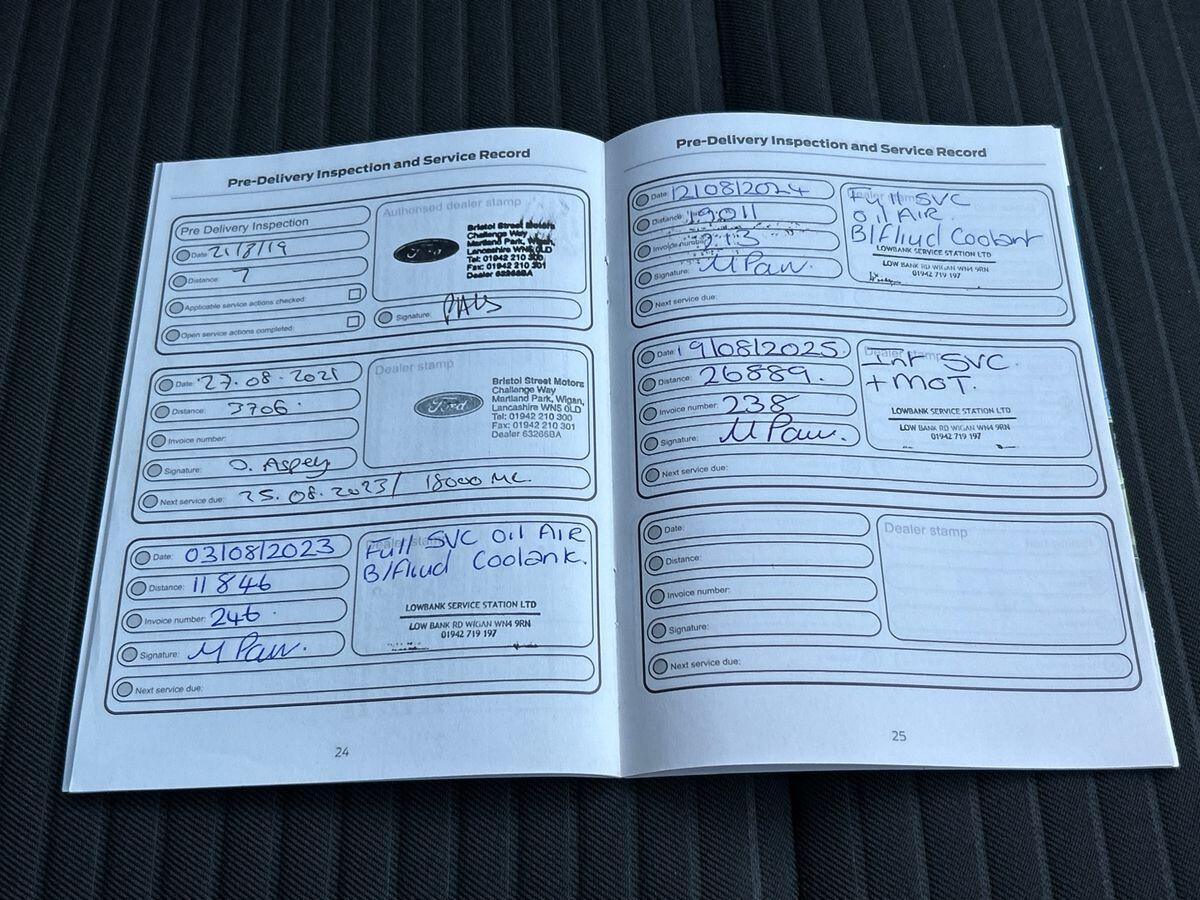 Pre-Delivery Inspection and Service Record
Pre Delivery Inspection
Date: 21/8/19
Distance: 7
Applicable service actions checked:
Open service actions completed:
Authorised dealer stamp
Ford
Bristol Street Motors
Challenge Way
Martland Park, Wigan,
Lancashire WN5 0LD
Tel: 01942 210 300
Fax: 01942 210 301
Dealer 63266BA
Signature:
Date: 27.08.2021
Distance: 3706.
Invoice number:
Signature: D. Aspey
Next service due: 25.08.2023/ 18000 ML.
Dealer stamp
Ford
Bristol Street Motors
Challenge Way
Martland Park, Wigan,
Lancashire WN5 0LD
Tel: 01942 210 300
Fax: 01942 210 301
Dealer 63266BA
Date: 03/08/2023
Distance: 11846
Invoice number: 246.
Signature: M Paw.
Next service due:
Dealer stamp
Full SVC Oil AIR
B/Fluid Coolant.
LOWBANK SERVICE STATION LTD
LOW BANK RD WIGAN WN4 9RN
01942 719 197
24
Pre-Delivery Inspection and Service Record
Date: 12/08/2024
Distance: 19011
Invoice number: 213
Signature: M Paw.
Next service due:
Dealer stamp
Full SVC
Oil AIR.
B/Fliud Coolant
LOWBANK SERVICE STATION LTD
LOW BANK RD WIGAN WN4 9RN
01942 719 197
Date: 19/08/2025.
Distance: 26889.
Invoice number: 238
Signature: M Paw.
Next service due:
Dealer stamp
Int SVC.
+ MOT.
LOWBANK SERVICE STATION LTD
LOW BANK RD WIGAN WN4 9RN
01942 719 197
Date:
Distance:
Invoice number:
Signature:
Next service due:
Dealer stamp
25